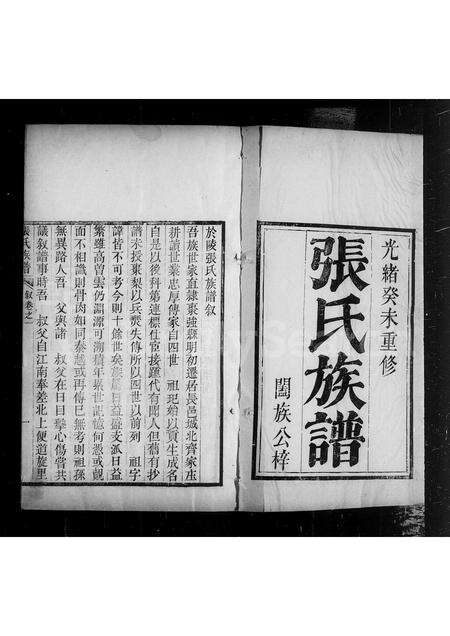 光緒癸未重修
張氏族譜
闔族公梓
於陵張氏族譜叙
吾族世家直隸棗強縣明初遷居長邑城北齊家庄
耕讀世業忠厚傳家自四世　祖玘始以貢生成名
自是以後科第連標仕宦接踵代有聞人但舊有抄
譜未授棗梨以兵燹失傳所以四世以前列　祖字
諱皆不可考今則十餘世矣族日益蕃支派日益
繁雖高曾雲仍淵源可溯積年累世記憶何憑或覿
面不相識則骨肉如同秦越或再傳已無考則祖孫
無異路人吾　父與諸　叔父在日目擊心傷嘗共
議叙譜事時吾　叔父自江南奉差北上便道旋里
張氏族譜　叙卷之　一